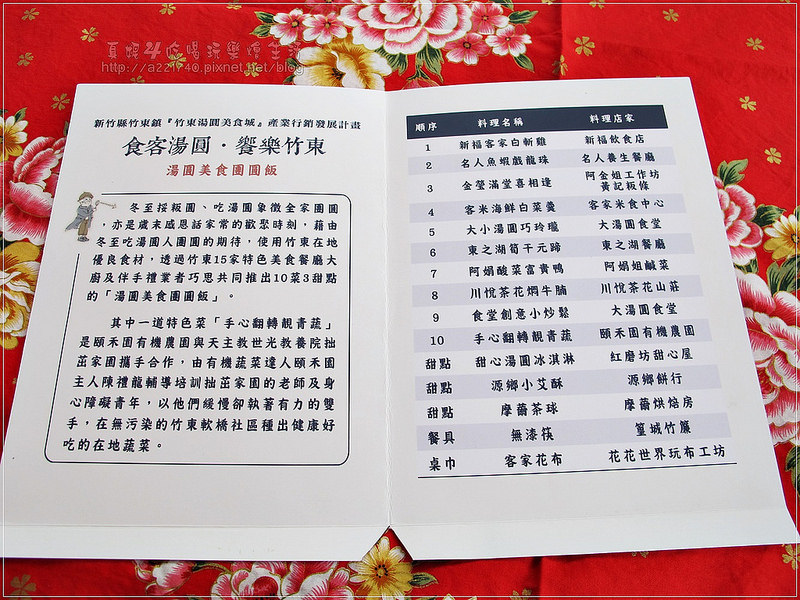 夏綠蒂吃喝玩樂瘋生活
http://a221740.pixnet.net/blog
新竹縣竹東鎮『竹東湯圓美食城』產業行銷發展計畫
食客湯圓．饗樂竹東
湯圓美食團圓飯
冬至挼粄圓、吃湯圓象徵全家團圓
，亦是歲末感恩話家常的歡聚時刻，藉由
冬至吃湯圓人團圓的期待，使用竹東在地
優良食材，透過竹東15家特色美食餐廳大
廚及伴手禮業者巧思共同推出10菜3甜點
的「湯圓美食團圓飯」。
其中一道特色菜「手心翻轉靚青蔬」
是頤禾園有機農園與天主教世光教養院拙
茁家園攜手合作，由有機蔬菜達人頤禾園
主人陳禮龍輔導培訓拙茁家園的老師及身
心障礙青年，以他們緩慢卻執著有力的雙
手，在無污染的竹東軟橋社區種出健康好
吃的在地蔬菜。
順序 料理名稱 料理店家
1 新福客家白斬雞 新福飲食店
2 名人魚蝦戲龍珠 名人養生餐廳
3 金瑩滿堂喜相逢 阿金姐工作坊
黃記粄條
4 客米海鮮白菜羹 客家米食中心
5 大小湯圓巧玲瓏 大湯圓食堂
6 東之湖筍干元蹄 東之湖餐廳
7 阿娟酸菜富貴鴨 阿娟姐鹹菜
8 川悅茶花燜牛腩 川悅茶花山莊
9 食堂創意小炒鬆 大湯圓食堂
10 手心翻轉靚青蔬 頤禾園有機農園
甜點 甜心湯圓冰淇淋 紅磨坊甜心屋
甜點 源鄉小艾酥 源鄉餅行
甜點 摩薾茶球 摩薾烘焙房
餐具 無漆筷 篁城竹簾
桌巾 客家花布 花花世界玩布工坊